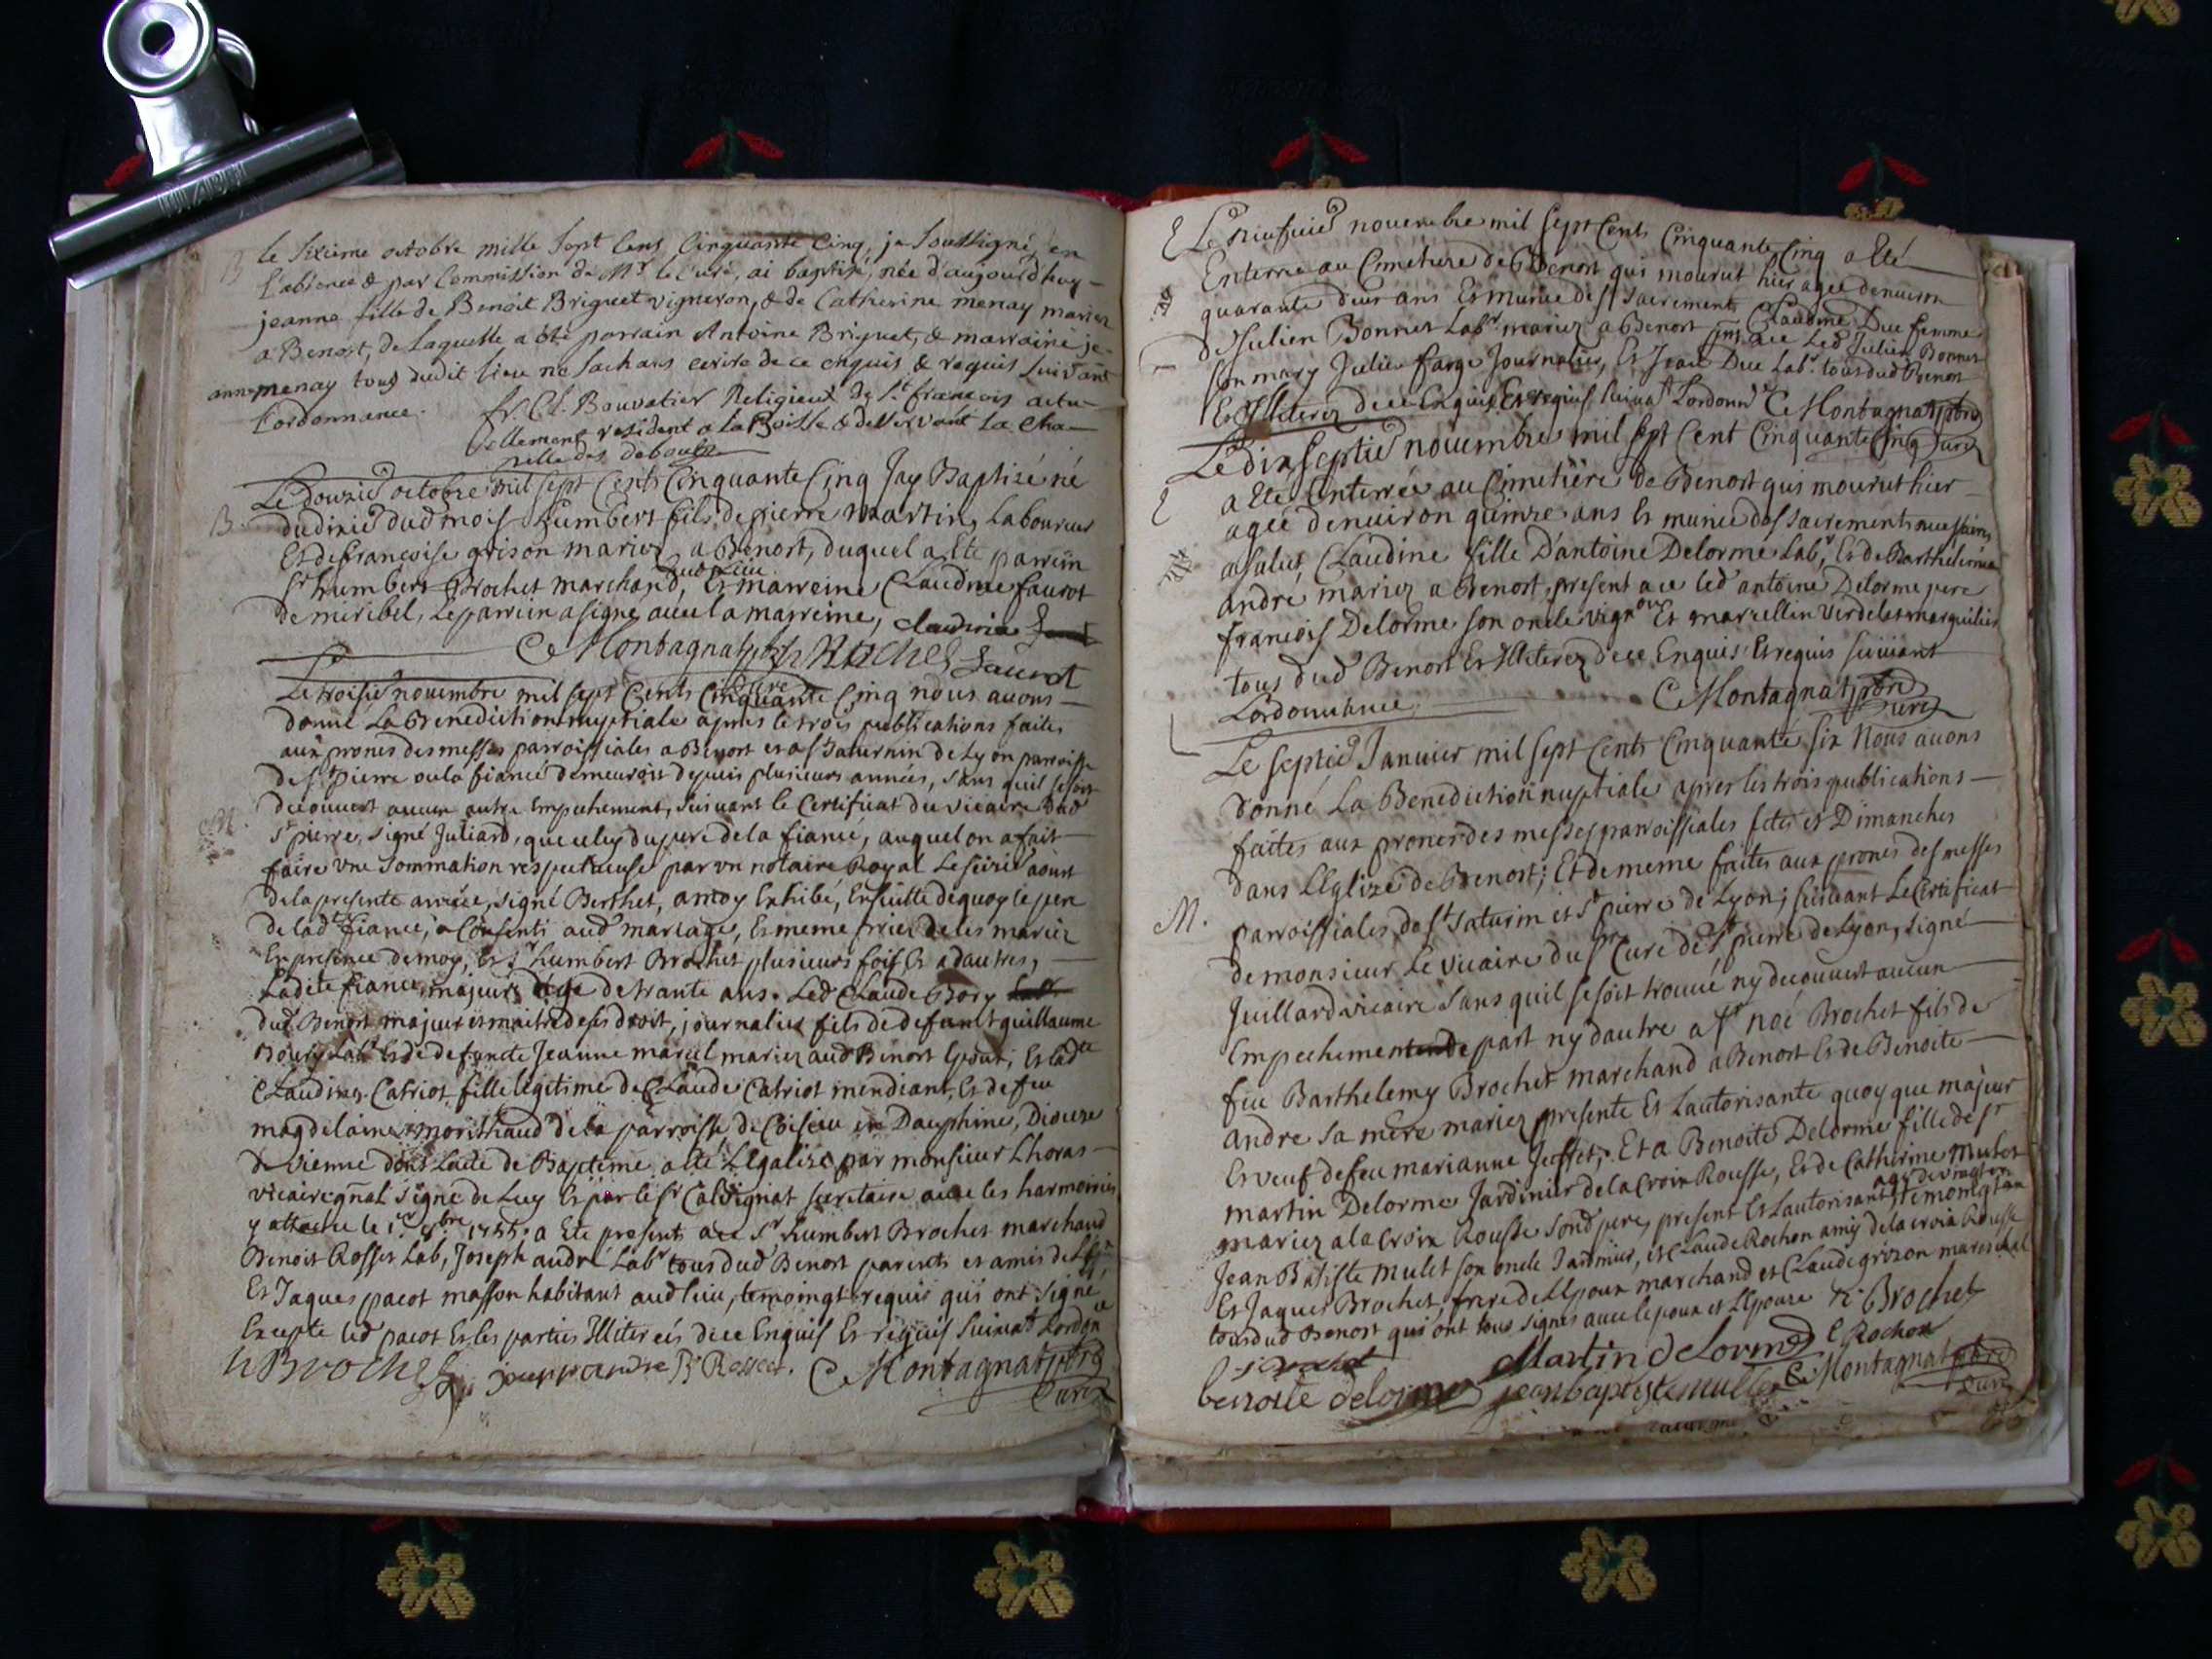 B le sixieme octobre mille sept Cens Cinquante Cinq, je soussigné, en
l'absence & par Commission de Mr le Curé, ai baptisé, née d'aujourd'huy
jeanne fille de Benoit Briguet vigneron, & de Catherine menay mariez
a Benost, de Laquelle a été parrain Antoine Briguet, & marraine je-
anne menay tous dudit lieu ne Sachans ecrire de ce enquis & requis suivant
L'ordonnance. fr. Cl. Bouvatier Religieux de St francois actu-
ellement resident a la Boisse & desservant La Cha-
pelle des
Le douzie octobre mil sept Cents Cinquante Cinq Jay Baptizé né
B. du dixie dud mois humbert fils de pierre martin, Laboureur
Et de francoise grison mariez a Benost, duquel a Ete parrein
Sr humbert Brochet marchand, dud Lieu Et marreine Claudine faurot
de miribel, Le parrein a signé avec la marreine, claudine
C Montagnat ptre h Brochet faurot
Curé
Le troisie novembre mil sept Cents Cinquante Cinq nous avons
donné La Benediction nuptiale apres le trois publications faites
aux prones des messes parroissiales a Benost et a St Saturnin de Lyon parroisse
de St pierre ou la fiancé demeuroit depuis plusieurs années, sans quil se soit
decouvert aucun autre Empechement, suivant le Certificat du vicaire dud
M. St pierre, signé Juliard, que celuy du pere de la fiancé, auquel on a fait
faire une Sommation respectueuse par un notaire Royal Le seizie aoust
de la presente année, signé Berthet, a moy Exhibé, Ensuitte dequoy le pere
de lad fiancé, a Consenti aud mariage, Et meme prier de les marier
En presence de moy, Et Sr humbert Brochet plusieurs fois Et a dautres,
Ladite fiance, majeure dége de trante ans. Led Claude Bory
dud Benost majeur et maitre de ses droit, journalier fils de defunct guillaume
Boury Labr Et de defuncte Jeanne marcel mariez aud Benost Epoux; Et ladte
Claudine Catriot fille legitime de Claude Catriot mendiant, Et de feu
magdelaine de la parroisse de en Dauphine, Dioceze
de Vienne dont Lacte de Bapteme a ete Legalizé par monsieur Lhoras
vicaire gnal signé de Luy Et par le Sr secretaire avec les harmoiries
y attaché le 1er 8bre 1755. a Ete presents a ce Sr humbert Brochet marchand
Benoit Rosset Lab, Joseph andré Labr tous dud Benost parents et amis de
Et Jaques pacot masson habitant aud lieu, temoingt requis qui ont Signé
Excepté led pacot Et les parties Illiterés de ce Enquis Et requis Suivat Lordon
h Brochet joseph andre B Rosset. C Montagnat ptre
Curé
Le novembre mil sept Cents Cinquante Cinq a Eté
Enterré au Cimetiere de Benost qui mourut hier agee denviron
quarante deux ans Et munie des Sacrements Claudine Duc femme
de Julien Bonnet Labr mariez a Benost pnt a ce Led Julien Bonnet
son mary Julien farge Journalier, Et Jean Duc Labr tous dud Benost
Et Illiterez de ce Enquis Et requis Suivat Lordonn C Montagnat ptre
Curé
Le dixseptie novembre mil sept Cent Cinquante Cinq
a Ete Enterrée au Cimetiere de Benost qui mourut hier
agée denviron quinze ans Et munie des sacrements necessaires
a salut, Claudine fille D'antoine Delorme Labr, Et de Barthelemie
andré mariez a Benost, present a ce led antoine Delorme pere
francois Delorme son oncle vignon Et marcellin Verdelet marguilier
tous dud Benost Et Illiterez de ce Enquis Et requis suivant
Lordonnance. C Montagnat ptre
Curé
Le septie Janvier mil sept Cents Cinquante six Nous avons
donné La Benediction nuptiale apres les trois publications
faites aux prones des messes parroissiales fetes et Dimanches
dans L'Eglize de Benost; Et de meme faites aux prones des messes
M. parroissiales de St Saturin et St pierre de Lyon; suivant Le Certificat
de monsieur le vicaire du Sr Curé de St pierre de Lyon, signé
Juillard vicaire Sans quil se soit trouvé ny decouvert aucun
Empechement de part ny dautre a Sr noé Brochet fils de
feu Barthelemy Brochet marchand a Benost Et de Benoite
andre sa mere mariez presente Et Lautorisante quoy que majeur
Et veuf de feu marianne Jeffret; Et a Benoite Delorme fille de Sr
martin Delorme Jardinier de la Croix Rousse, Et de Catherine Mulet
mariez a la Croix Rousse Sond pere, present Et Lautorisant, temoingt
Jean Batiste mulet son oncle Jardinier, et Claude Rochon amis de la croix Rousse
Et Jaques Brochet, frere de Lepoux marchand et Claude grizon mareschal
tous dud Benost qui ont tous signes avec lepoux et Lepouse N. Brochet
j Brochet Martin de Lorme C Rochon
benoite delorme jean baptiste mullet C Montagnat ptre
Curé